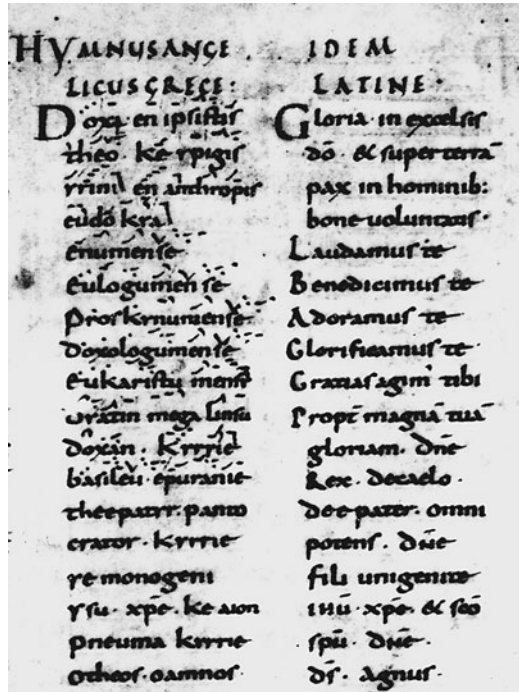 HYMNUS ANGE
LICUS GRECE:
Doxa en ipsistis
theo. ke ypigis
yrini en anthropis
eudokia
enumense
Eulogumen se
Proskynumense
doxologumense
eukaristu mense
megalinsu
doxan. Kyrie
basileu epuranie
theepatyr. panto
crator. Kyrie
ye monogeni
ysu. xp̄e. ke aion
pneuma kyrie
otheos. oamnos.
IDEM
LATINE.
Gloria in excelsis
dō. & super terrā
pax in hominib:
bone voluntatis.
Laudamus te
Benedicimus te
Adoramus te
Glorificamus te
Gratias agim̄ tibi
Propt̄ magnā tuā
gloriam. dn̄e
Rex. decaelo.
deepater. omni
potens. dn̄e
fili unigenite
ihū. xp̄e. & scō
spū. dn̄e.
dī. Agnus.